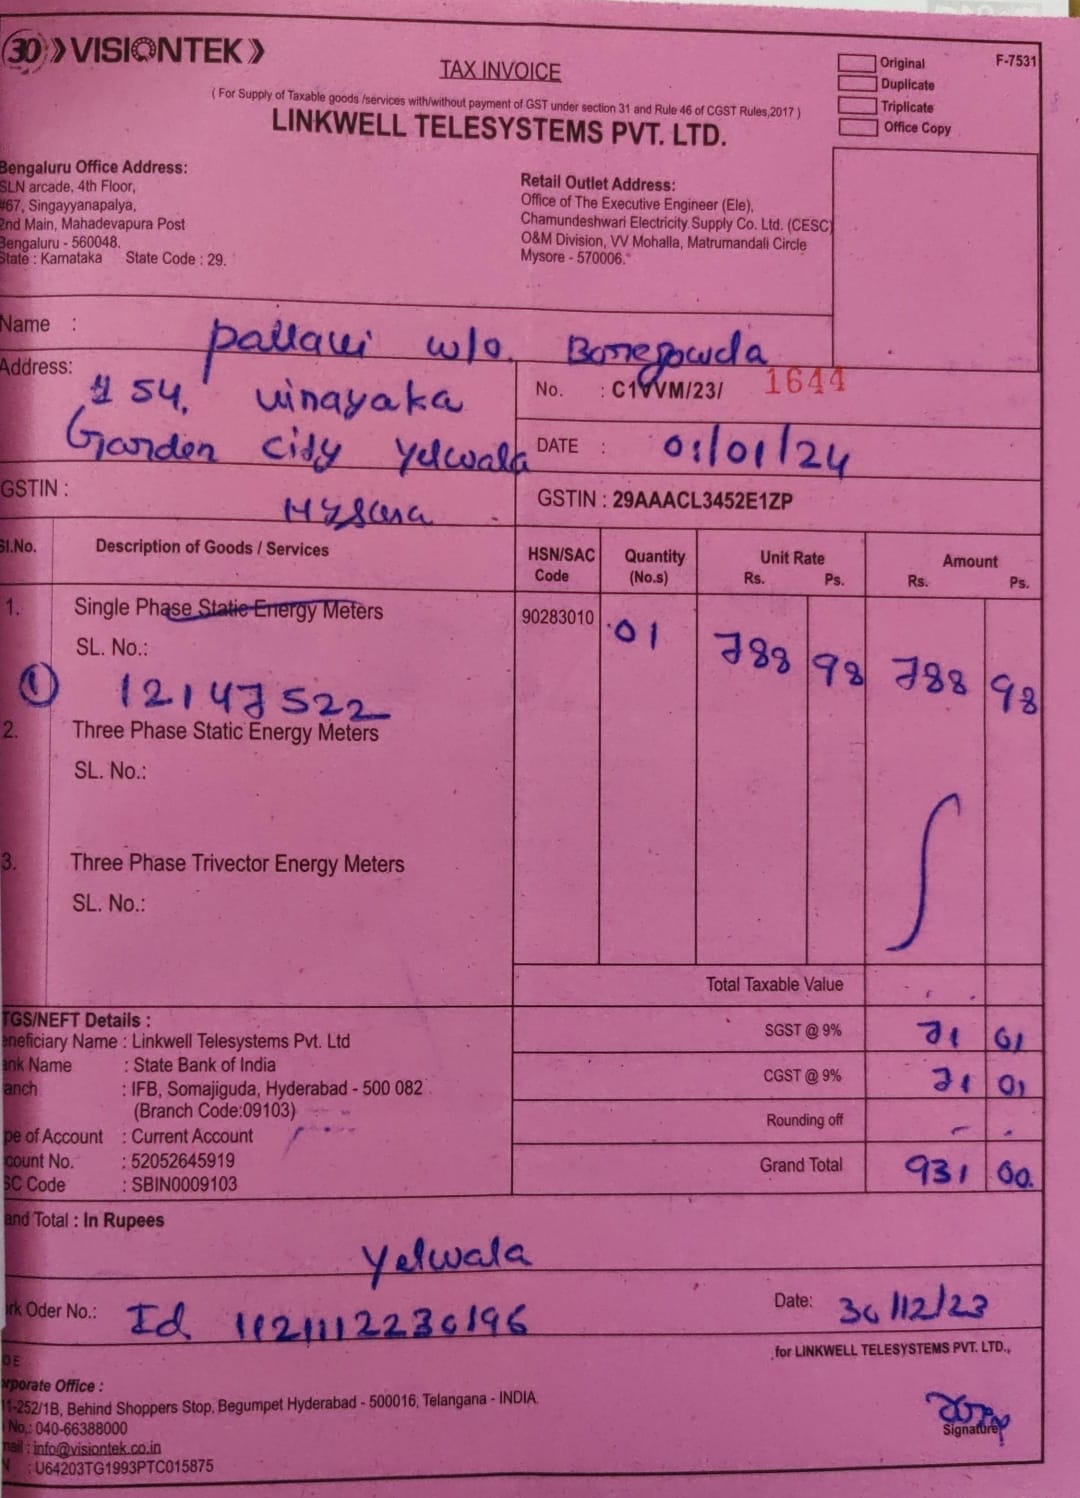 30 VISIONTEK
TAX INVOICE
( For Supply of Taxable goods /services with/without payment of GST under section 31 and Rule 46 of CGST Rules,2017 )
LINKWELL TELESYSTEMS PVT. LTD.
Original
Duplicate
Triplicate
Office Copy
F-7531
Bengaluru Office Address:
SLN arcade, 4th Floor,
#67, Singayyanapalya,
2nd Main, Mahadevapura Post
Bengaluru - 560048.
State : Karnataka State Code : 29.
Retail Outlet Address:
Office of The Executive Engineer (Ele),
Chamundeshwari Electricity Supply Co. Ltd. (CESC)
O&M Division, VV Mohalla, Matrumandali Circle
Mysore - 570006.
Name : pallavi w/o. Borregowda
Address: # 54, vinayaka
Garden city Yelwala
Mysura
No. : C1VVM/23/ 1644
DATE : 01/01/24
GSTIN :
GSTIN : 29AAACL3452E1ZP
Sl.No. Description of Goods / Services HSN/SAC Code Quantity (No.s) Unit Rate Rs. Ps. Amount Rs. Ps.
1. Single Phase Static Energy Meters 90283010 01 788 98 788 98
SL. No.:
1 12147522
2. Three Phase Static Energy Meters
SL. No.:
3. Three Phase Trivector Energy Meters
SL. No.:
Total Taxable Value
SGST @ 9% 71 01
CGST @ 9% 71 01
Rounding off - .
Grand Total 931 00.
TGS/NEFT Details :
eneficiary Name : Linkwell Telesystems Pvt. Ltd
ank Name : State Bank of India
anch : IFB, Somajiguda, Hyderabad - 500 082
(Branch Code:09103)
pe of Account : Current Account
count No. : 52052645919
SC Code : SBIN0009103
and Total : In Rupees
Yelwala
rk Oder No.: Id 1121112230196
Date: 30/12/23
for LINKWELL TELESYSTEMS PVT. LTD.,
Signature
rporate Office :
11-252/1B, Behind Shoppers Stop, Begumpet Hyderabad - 500016, Telangana - INDIA.
No.: 040-66388000
mail : info@visiontek.co.in
N : U64203TG1993PTC015875